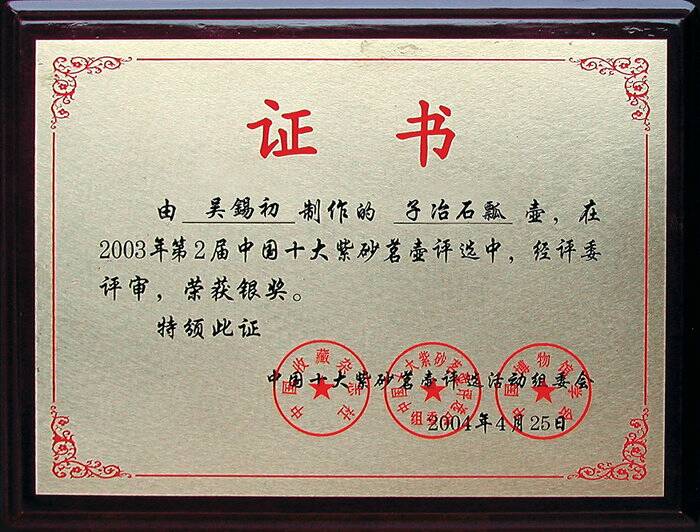 证书
由 吴錫初 制作的 子冶石瓢 壶，在
2003年第2届中国十大紫砂茗壶评选中，经评委
评审，荣获银奖。
特颁此证
中国十大紫砂茗壶评选活动组委会
2004年4月25日
中国收藏杂志社
中国博物馆学会